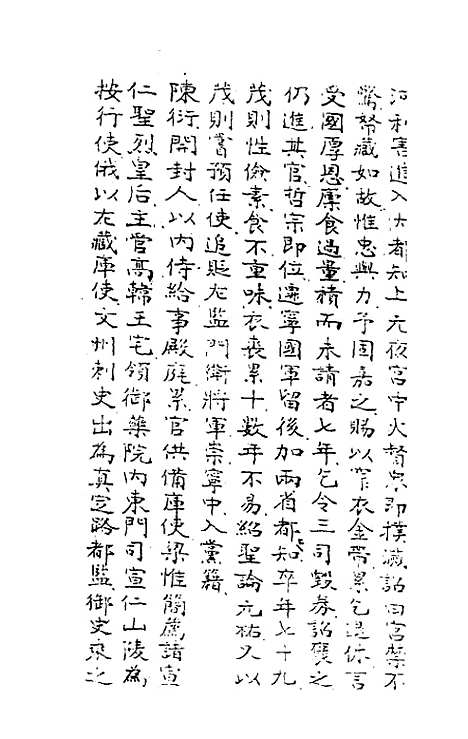 河利害進入內都知上元夜宮中火督眾即撲滅詔曰宮禁不
驚帑藏如故惟忠與力予固嘉之賜以窄衣金帶累乞退休言
受國厚恩廩食過量積而未請者七年乞令三司毀券詔褒之
仍進其官哲宗即位遷寧國軍留後加兩省都知卒年七十九
茂則性儉素食不重味衣裘累十數年不易紹聖論元祐又以
茂則嘗預任使追貶左監門衛將軍崇寧中入黨籍
陳衍開封人以內侍給事殿庭累官供備庫使梁惟簡薦諸宣
仁聖烈皇后主管高韓王宅領御藥院內東門司宣仁山陵為
按行使俄以左藏庫使文州刺史出為真定路都監御史來之